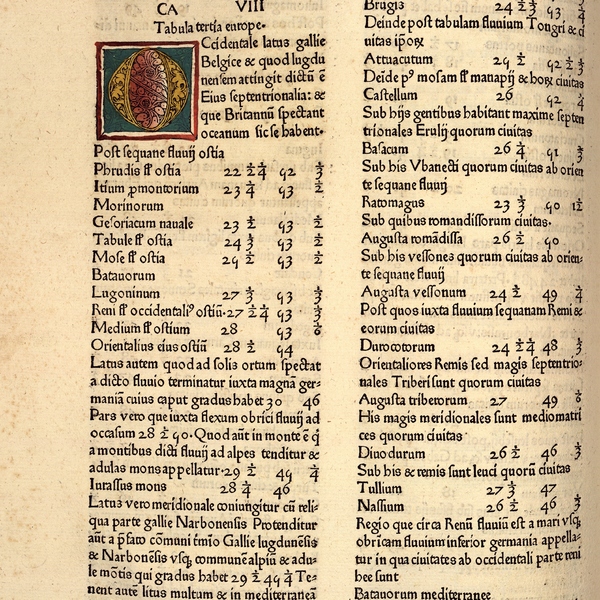 CA VIII
Tabula tertia europe.
OCcidentale latus gallie
Belgice & quod lugdu
nensem attingit dictū ē
Eius septentrionalia: &
que Britannū spectant
oceanum sic se habent.
Post sequane fluuij ostia
Phrudis fl' ostia 22 ½ ¼ 92 ⅓
Itium promontorium 23 ¼ 93 ½
Morinorum
Gesoriacum nauale 23 ½ 93 ½
Tabule fl' ostia 24 ⅓ 93 ½
Mose fl' ostia 29 ½ 93 ½
Batauorum
Lugoninum 27 ⅓ 93 ⅓
Reni fl' occidentali' ostiū. 27 ½ ¼ 93 ⅓
Medium fl' ostium 28 93 ⅙
Orientalius eius ostiū 28 ½ 94
Latus autem quod ad solis ortum spectat
a dicto fluuio terminatur iuxta magnā ger-
maniā cuius caput gradus habet 30 46
Pars vero que iuxta flexum obrici fluuij ad
occasum 28 ½ 90. Quod aūt in monte ē q
a montibus dicti fluuij ad alpes tenditur &
adulas mons appellatur. 29 ½ 49 ¼
Iurassus mons 28 ¼ 46
Latus vero meridionale coniungitur cū reli-
qua parte gallie Narbonensis Protenditur
aūt a pfato cōmuni fmīo Gallie lugdunēsis
& Narbonēsis vsq cōmune alpiū & adu-
le mōtis qui gradus habet 29 ½ 49 ¼ Te-
nent autē litus multum & in mediterranea
Brugis 24 ½ ⅓ 93 ⅓
Deinde post tabulam fluuium Tongri & ci
uitas ipoꝝ
Attuacutum 29 ½ 92 ½ ⅓
Deīde p' mosam fl' manapij & hoꝝ ciuitas
Castellum 26 92 ¼
Sub hijs gentibus habitant maxime septen
trionales Erulij quorum ciuitas
Basacum 26 ¼ 91 ⅓
Sub his Vbanecti quorum ciuitas ab orien
te sequane fluuij
Ratomagus 23 ⅓ 90 12
Sub quibus romandissorum ciuitas.
Augusta romādissa 26 ½ 90
Sub his vessones quorum ciuitas ab orien-
te sequane fluuij
Augusta vessonum 24 ½ 49 ¼
Post quos iuxta fluuium sequanam Remi &
eorum ciuitas
Durocotorum 24 ½ ¼ 48 ⅓
Orientaliores Remis sed magis septentrio-
nales Triberi sunt quorum ciuitas
Augusta triberorum 27 49 ⅙
His magis meridionales sunt mediomatri
ces quorum ciuitas
Diuodurum 26 ½ 46 ⅓
Sub his & remis sunt leuci quorū ciuitas
Tullium 27 ⅓ 47
Nassium 26 ½ 46 ⅓
Regio que circa Renū fluuiū est a mari vsq
obricam fluuium inferior germania appella-
tur in qua ciuitates ab occidentali parte reni
hee sunt
Batauorum mediterranee